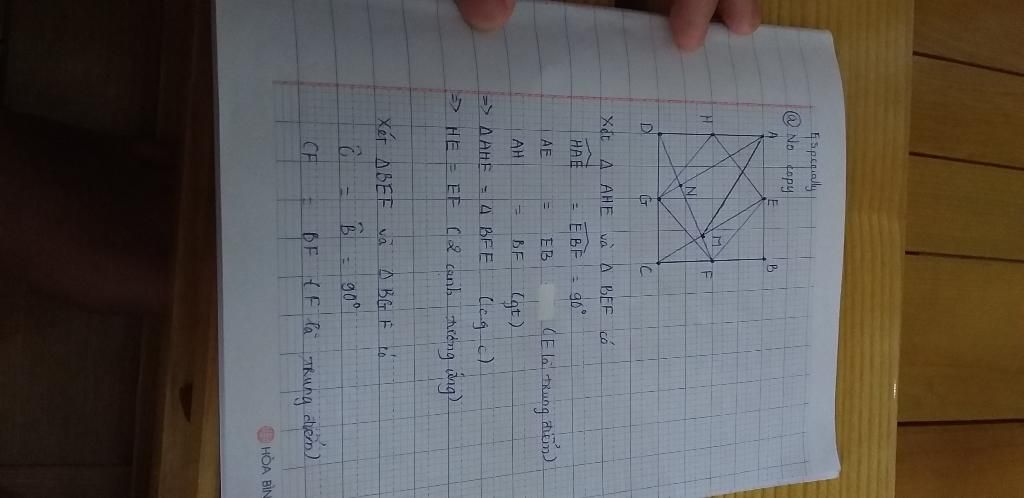 Especially
@ No copy
A E B
H M F
N
D G C
Xét Δ AHE và Δ BEF có
HAE = EBF = 90°
AE = EB (E là trung điểm)
AH = BF (gt)
=> ΔAHE = Δ BFE (c.g.c)
=> HE = EF (2 cạnh tương ứng)
Xét ΔBEF và Δ BGF có
Ĉ = B̂ = 90°
CF = BF (F là trung điểm)
HÒA BÌN